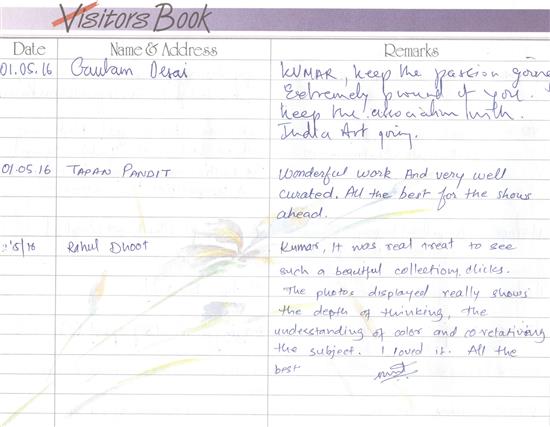 Visitors Book
Date Name & Address Remarks
01.05.16 Gautam Desai KUMAR, keep the passion going
Extremely proud of you.
keep the association with
India Art going.
01.05.16 TAPAN PANDIT Wonderful work And very well
curated. All the best for the shows
ahead.
1/5/16 Rahul Dhoot Kumar, It was real treat to see
such a beautiful collection, clicks.
The photos displayed really shows
the depth of thinking, the
understanding of color and corelativing
the subject. I loved it. All the
best